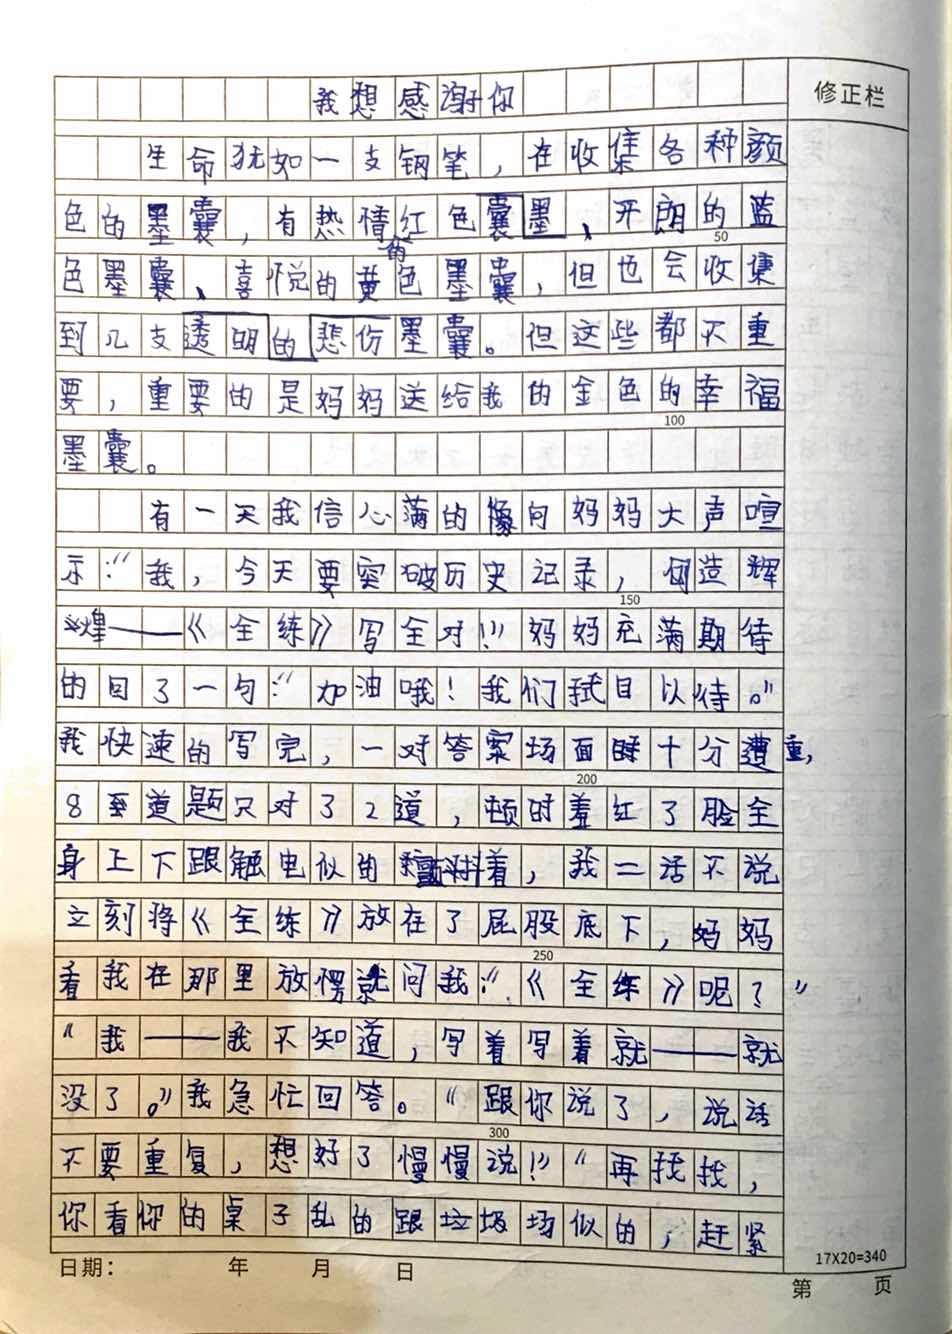 我想感谢你
修正栏
生命犹如一支钢笔，在收集各种颜
色的墨囊，有热情红色囊墨、开朗的蓝
的
50
色墨囊、喜悦的黄色墨囊，但也会收集
到几支透明的悲伤墨囊。但这些都不重
要，重要的是妈妈送给我的金色的幸福
100
墨囊。
有一天我信心满的像向妈妈大声喧
示："我，今天要突破历史记录，创造辉
150
煌——《全练》写全对!"妈妈充满期待
的回了一句："加油哦！我们拭目以待。"
我快速的写完，一对答案场面时十分遭重，
200
8至道题只对了2道，顿时羞红了脸全
身上下跟触电似的颤抖着，我二话不说
立刻将《全练》放在了屁股底下，妈妈
250
看我在那里放愣就问我："《全练》呢？"
"我——我不知道，写着写着就——就
没了。"我急忙回答。"跟你说了，说话
300
不要重复，想好了慢慢说!""再找找，
你看你的桌子乱的跟垃圾场似的，赶紧
17X20=340
日期： 年 月 日
第 页